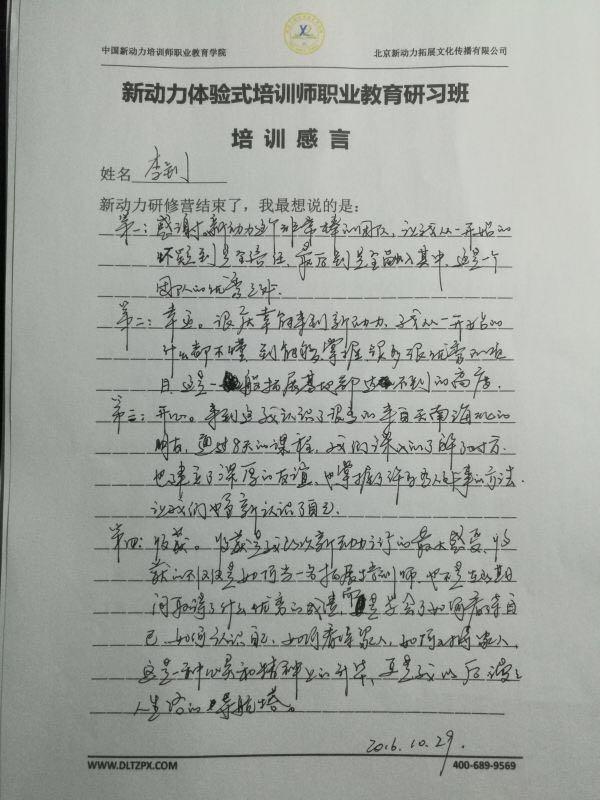 中国新动力培训师职业教育学院
北京新动力拓展文化传播有限公司
新动力体验式培训师职业教育研习班
培训感言
姓名 李剑
新动力研修营结束了，我最想说的是：
第一：感谢。新动力这个非常棒的团队，让我从一开始的
怀疑到完全信任，最后到完全融入其中，这是一个
团队的优秀之处.
第二：幸运。很庆幸能来到新动力，让我从一开始的
什么都不懂到能够掌握很多很优秀的项
目，这是一般拓展基地都达不到的高度.
第三：开心。来到这我认识了很多的来自天南海北的
朋友，通过8天的课程，我们深入的了解了对方
也建立了深厚的友谊，也掌握了许多为人处事的方法.
让我们也重新认识了自己.
第四：收获。收获是我此次新动力之行的最大感受，收
获的不仅仅是如何当一名拓展培训师，也不是在此期
间取得了什么优秀的成绩，而是学会了如何看待自
己，如何认识自己，如何看待家人，如何对待家人，
这是一种心灵和精神上的升华，更是我以后漫漫
人生路的导航塔。
2016.10.29.
WWW.DLTZPX.COM
400-689-9569